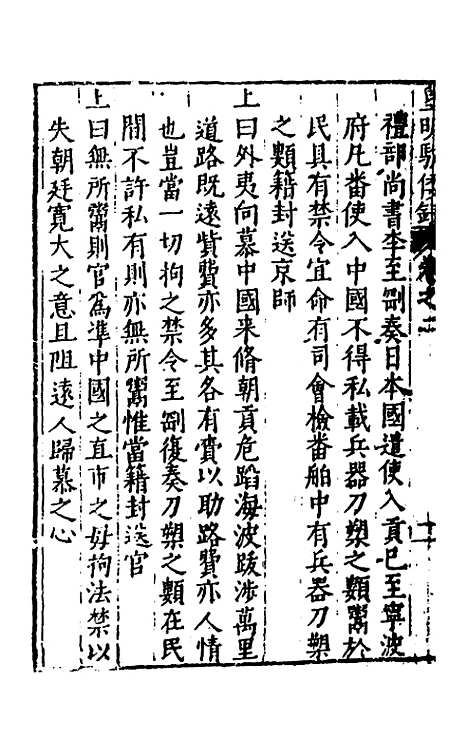 皇明馭倭錄 卷之二
禮部尚書李至剛奏日本國遣使入貢已至寧波
府凡番使入中國不得私載兵器刀槊之類鬻於
民具有禁令宜命有司會檢番舶中有兵器刀槊
之類籍封送京師
上曰外夷向慕中國來脩朝貢危蹈海波跋涉萬里
道路既遠貲費亦多其各有賫以助路費亦人情
也豈當一切拘之禁令至剛復奏刀槊之類在民
間不許私有則亦無所鬻惟當籍封送官
上曰無所鬻則官為準中國之直市之毋拘法禁以
失朝廷寬大之意且阻遠人歸慕之心